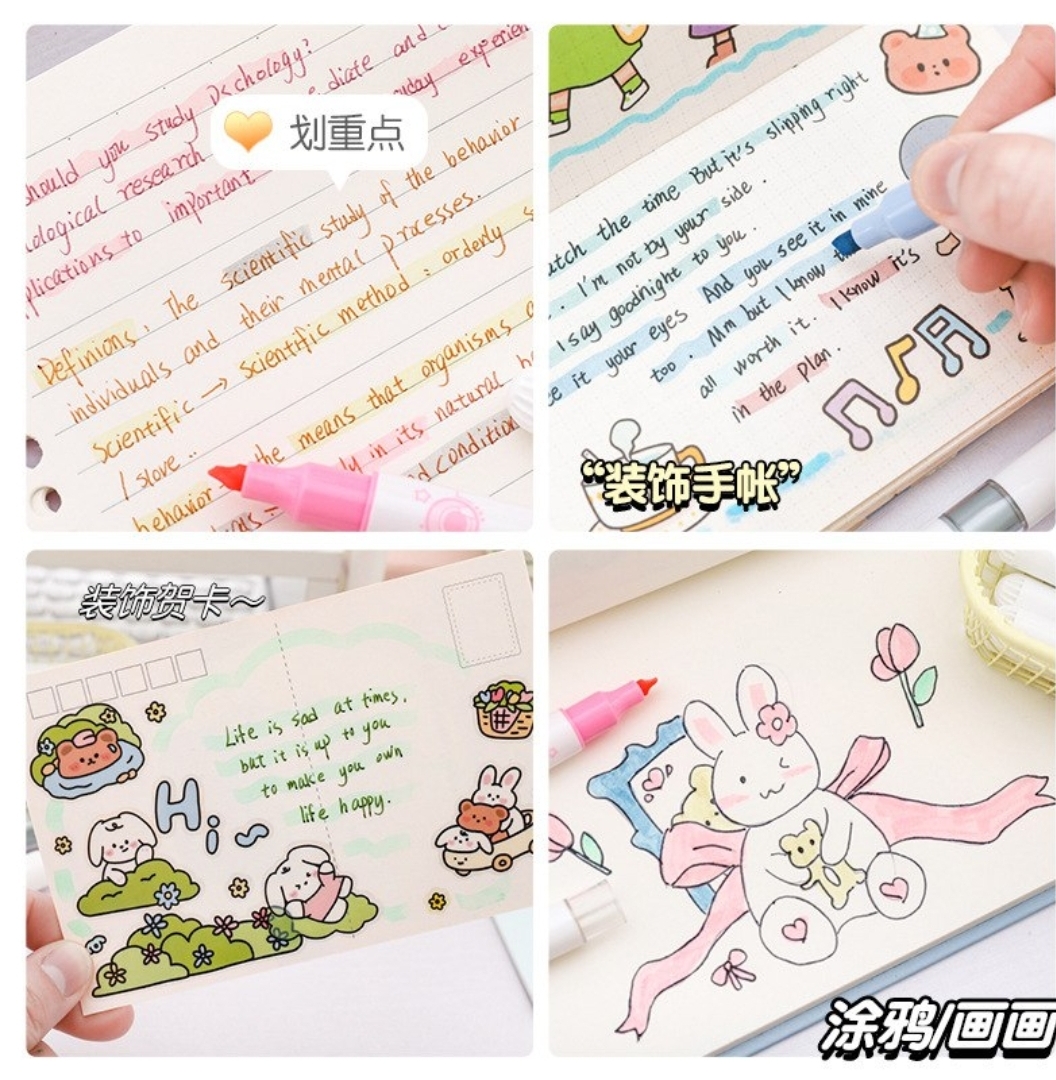 should you study Dschology?
ediate and
yday experien
ological research
important
plications to
划重点
Definions, The scientific study of the behavior
individuals and their mental processes.
Scientific → scientific method : orderly
I slove ..
the means that organisms
behavior
in its natural
condition
atch the time But it's slipping right
. I'm not by your side .
I say goodnight to you .
e it your eyes And you see it in mine
too . Mm but I know
all worth it . I know it's
in the plan .
“装饰手帐”
装饰贺卡～
Life is sad at times,
but it is up to you
to make you own
life happy.
Hi~
涂鸦/画画